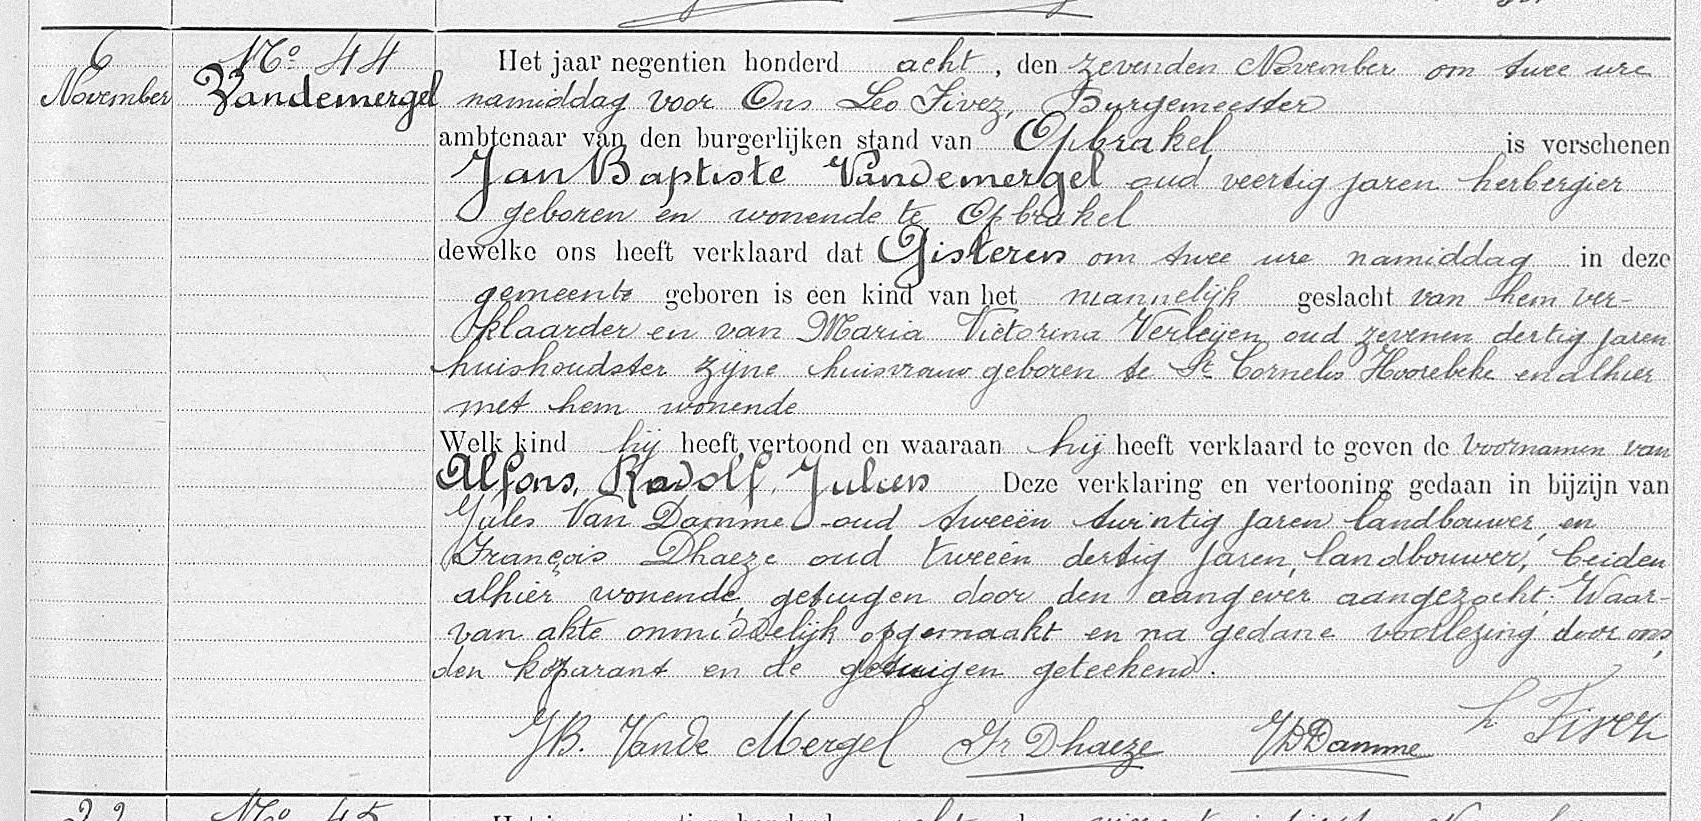 6
November
No 44
Vandemergel
Het jaar negentien honderd acht, den zevenden November om twee ure
namiddag voor Ons Leo Fivez, Burgemeester
ambtenaar van den burgerlijken stand van Opbrakel is verschenen
Jan Baptiste Vandemergel oud veertig jaren herbergier
geboren en wonende te Opbrakel
dewelke ons heeft verklaard dat Gisteren om twee ure namiddag in deze
gemeente geboren is een kind van het mannelijk geslacht van hem ver-
klaarder en van Maria Victorina Verleijen oud zevenen dertig jaren
huishoudster zijne huisvrouw geboren te St Cornelis Hoorebeke en alhier
met hem wonende
Welk kind hij heeft vertoond en waaraan hij heeft verklaard te geven de voornamen van
Alfons, Rodolf, Julien Deze verklaring en vertooning gedaan in bijzijn van
Jules Van Damme oud tweeën twintig jaren landbouwer, en
François Dhaeze oud tweeën dertig jaren, landbouwer, beiden
alhier wonende, getuigen door den aangever aangezocht. Waar-
van akte onmiddelijk opgemaakt en na gedane voorlezing door ons,
den koparant en de getuigen geteekend.
JB. Vande Mergel Fr Dhaeze JVDamme L Fivez
22
No 45